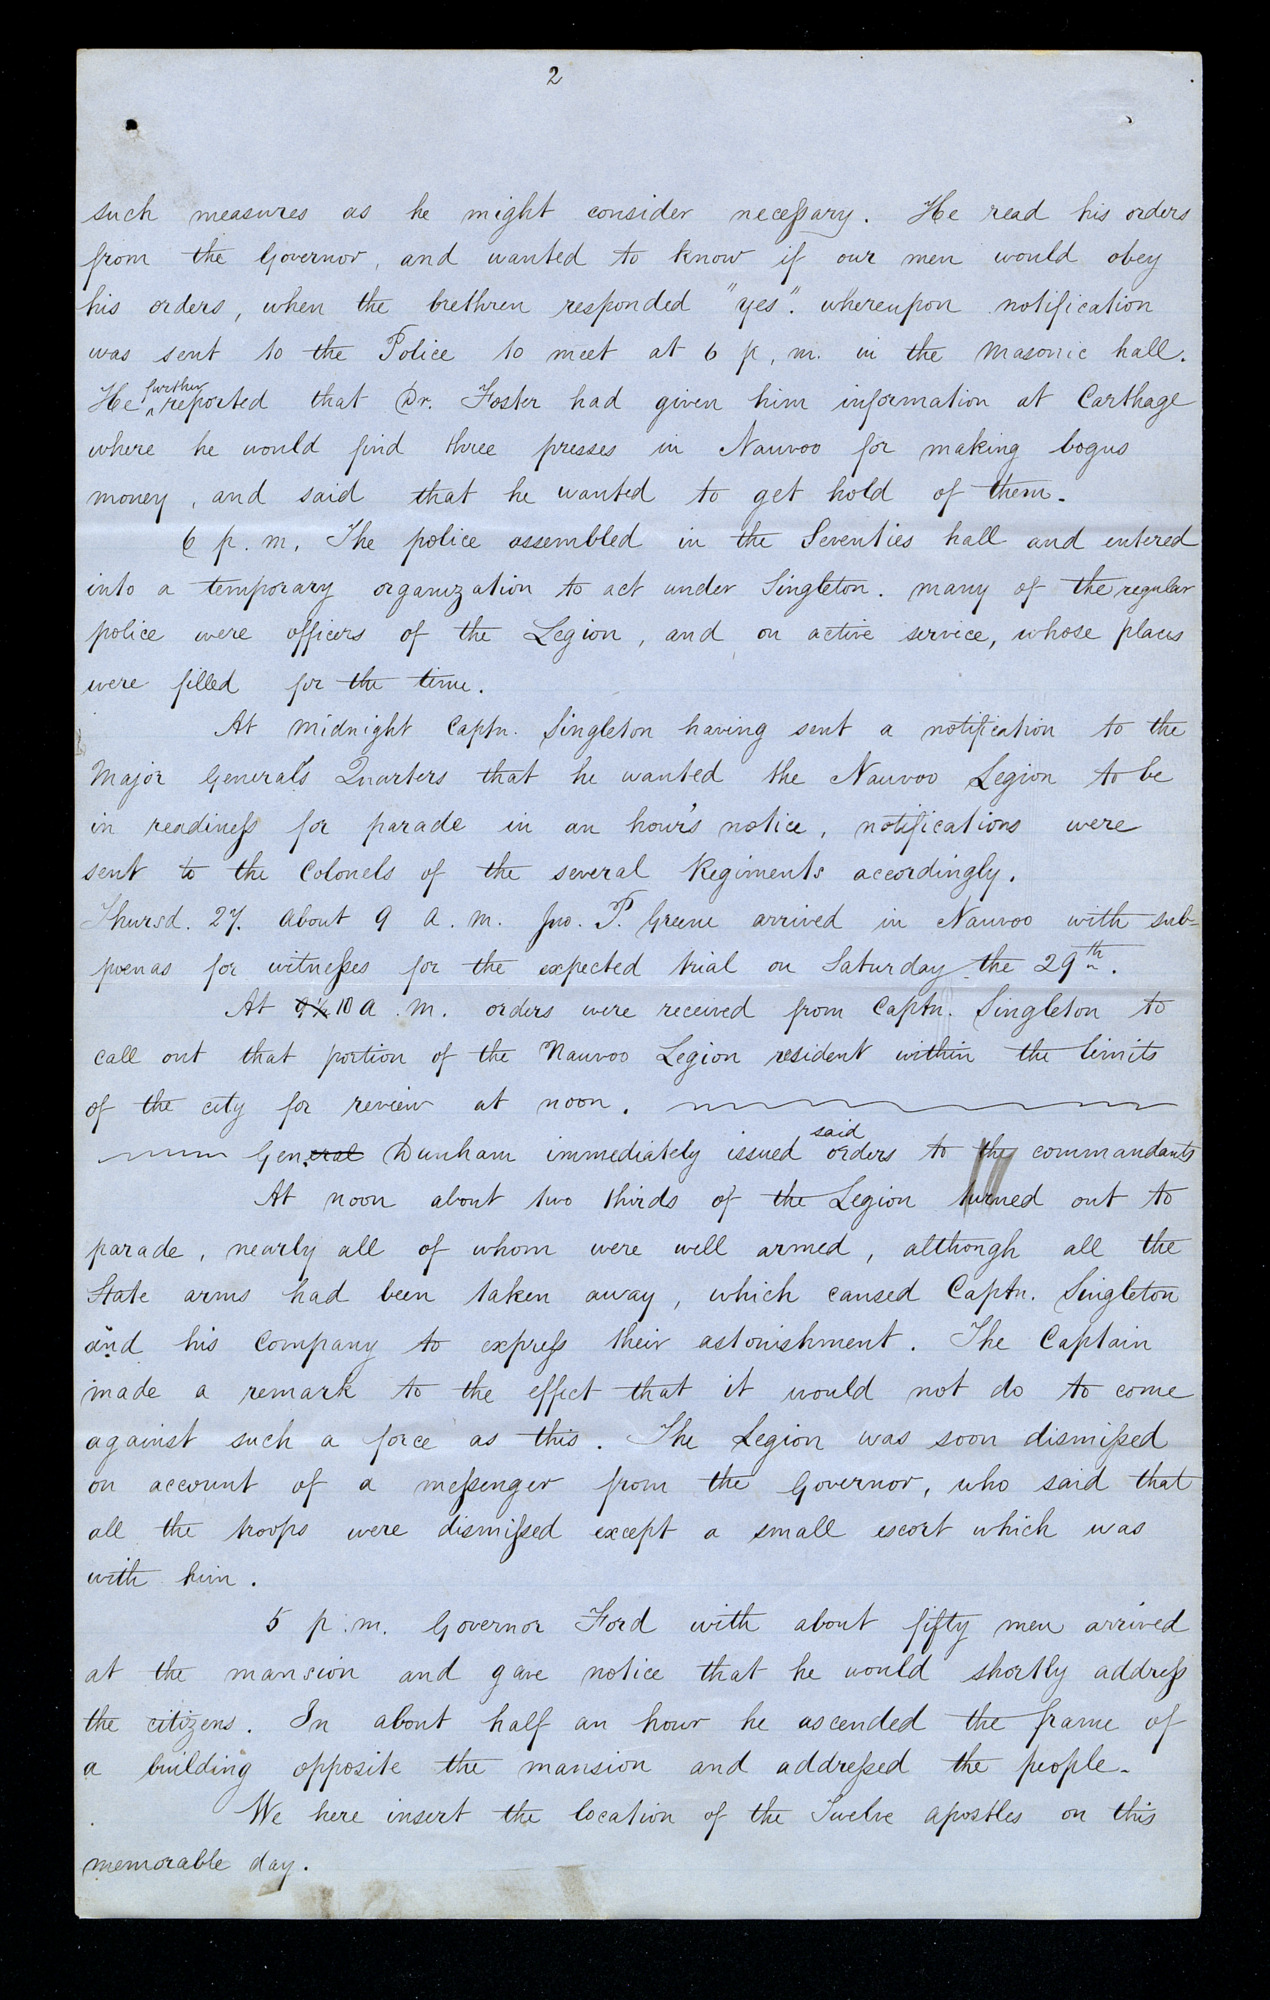 2
such measures as he might consider necessary. He read his orders
from the Governor, and wanted to know if our men would obey
his orders, when the brethren responded "yes". whereupon notification
was sent to the Police to meet at 6 p. m. in the Masonic hall.
He further reported that Dr. Foster had given him information at Carthage
where he would find three presses in Nauvoo for making bogus
money, and said that he wanted to get hold of them.
6 p. m. The police assembled in the Seventies hall and entered
into a temporary organization to act under Singleton. many of the regular
police were officers of the Legion, and on active service, whose places
were filled for the time.
At midnight Captn. Singleton having sent a notification to the
Major General's Quarters that he wanted the Nauvoo Legion to be
in readiness for parade in an hour's notice, notifications were
sent to the Colonels of the several Regiments accordingly.
Thursd. 27. About 9 A. M. Jno. P. Greene arrived in Nauvoo with sub-
poenas for witnesses for the expected trial on Saturday the 29th.
At 9½ 10 A. M. orders were received from Captn. Singleton to
call out that portion of the Nauvoo Legion resident within the limits
of the city for review at noon.
General Dunham immediately issued said orders to the commandants
At noon about two thirds of the Legion turned out to
parade, nearly all of whom were well armed, although all the
State arms had been taken away, which caused Captn. Singleton
and his company to express their astonishment. The Captain
made a remark to the effect that it would not do to come
against such a force as this. The Legion was soon dismissed
on account of a messenger from the Governor, who said that
all the troops were dismissed except a small escort which was
with him.
5 p. m. Governor Ford with about fifty men arrived
at the mansion and gave notice that he would shortly address
the citizens. In about half an hour he ascended the frame of
a building opposite the mansion and addressed the people.
We here insert the location of the Twelve Apostles on this
memorable day.